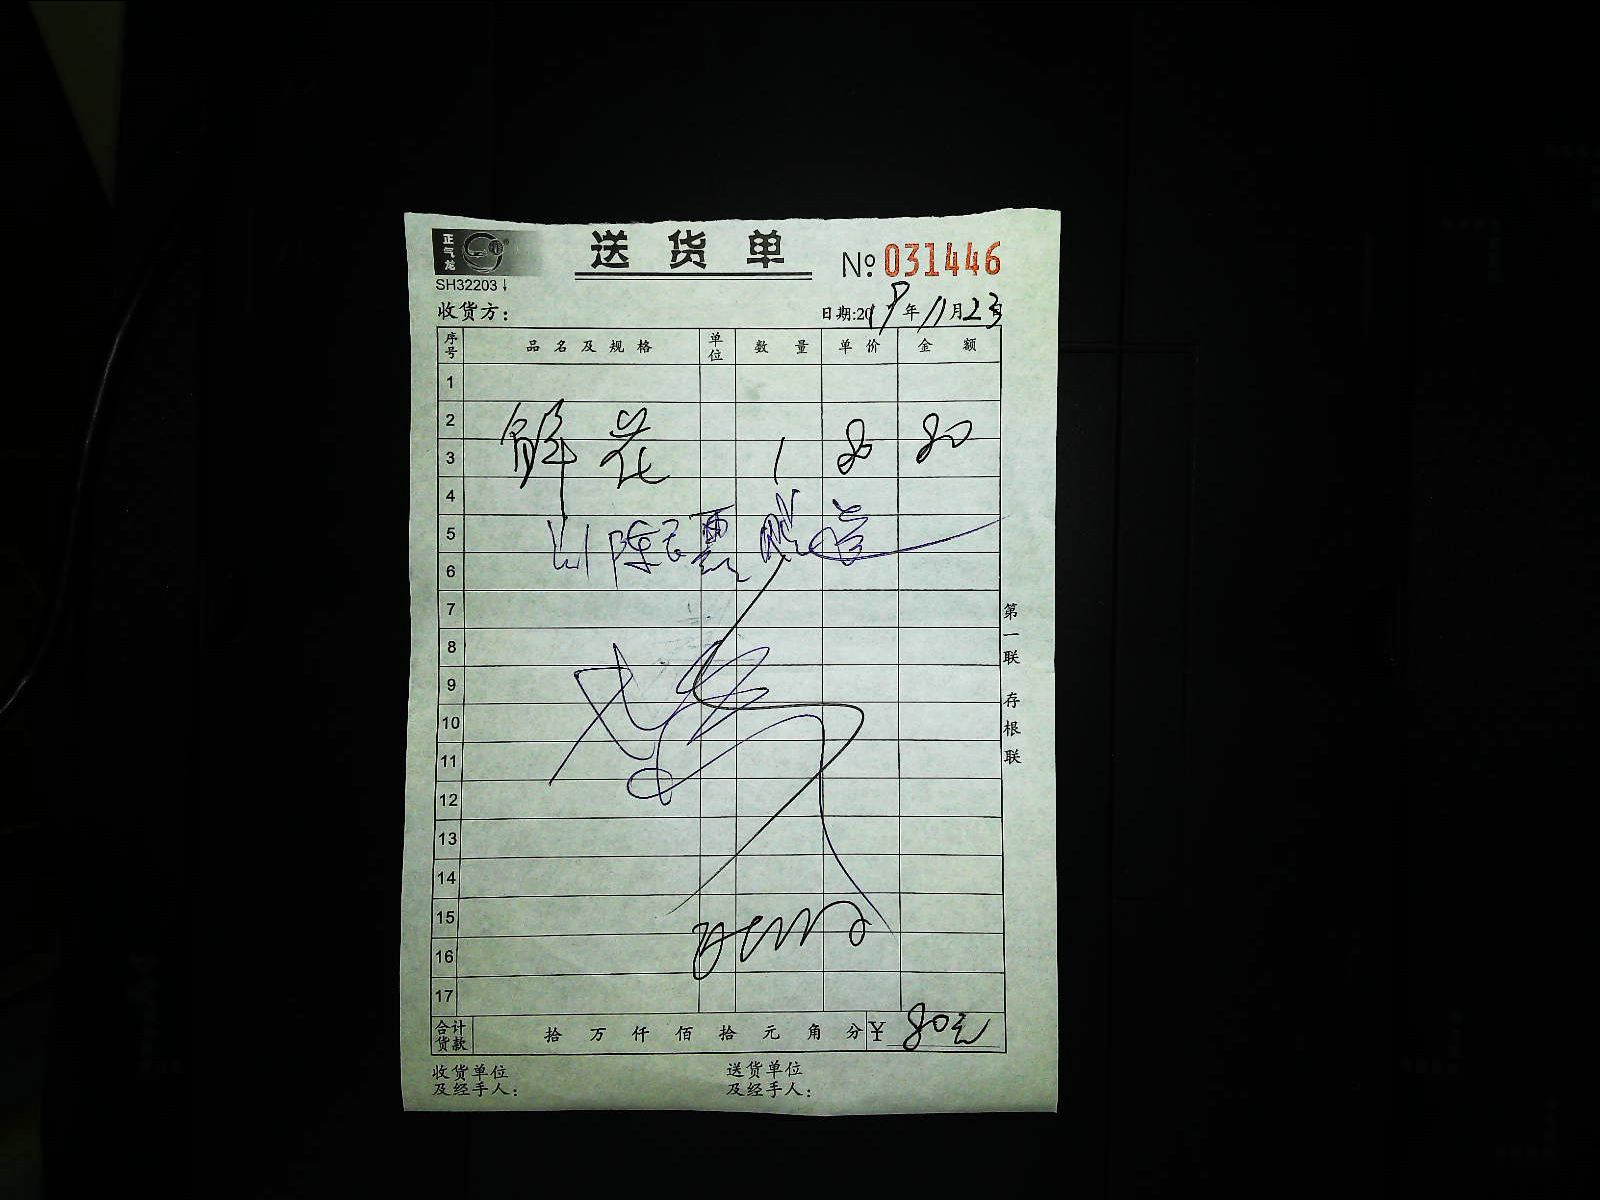 正气龙
送货单
No: 031446
SH32203
收货方：
日期:2019年11月23日
序号 品名及规格 单位 数量 单价 金额
1
2
鲜花 1 80 80
3
4
5
6
7
8
9
10
11
12
13
14
15
16
17
合计货款 拾 万 仟 佰 拾 元 角 分 ¥ 80元
收货单位及经手人：
送货单位及经手人：
第一联 存根联